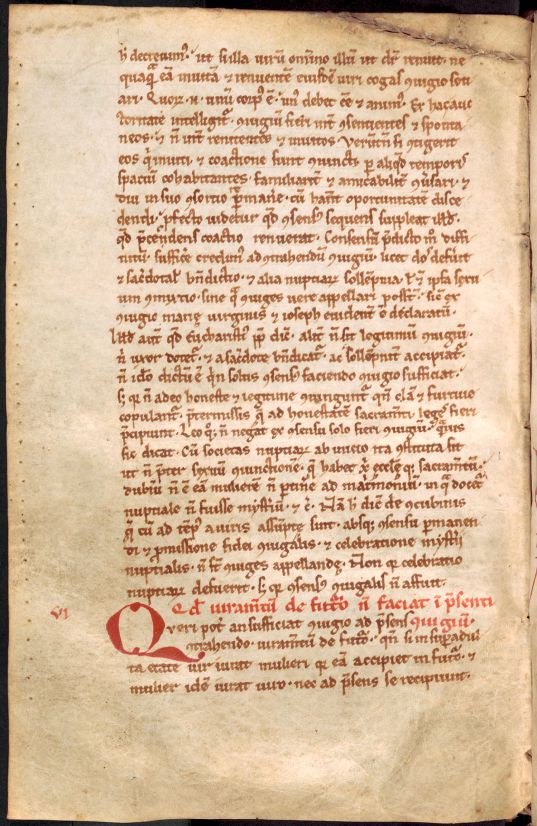 h̄ decretum̄. ut si illa uirū omīno illū ut dr̄ renuit. ne
quaqͣ eā inuitā ⁊ renitentē eiusdē uiri cogas ꝯiugio soci
ari. Quoꝝ .n. unū corpꝰ ē. unꝰ debet eē ⁊ animꝰ. Ex hac auc
toritate intelligit̉. ꝯiugiū fieri int̉ ꝯsentientes ⁊ sponta
neos. ⁊ n̄ int̉ renitentes ⁊ inuitos. Verūtn̄ si ꝯtigerit
eos qͥ inuiti ⁊ coactione fiunt ꝯiuncti. ꝑ aliqd̄ temporis
spaciū cohabitantes. familiarit̉ ⁊ amicabilit̉ ꝯu̓sari. ⁊
diu in suo ꝯsortio ꝑmane. cū hānt oportunitatē disce
dendi. ꝓfecto uidetur qd̄ ꝯsensꝰ sequens suppleat illd̄.
qd̄ p̄cedens coactio renuerat. Consensū p̄dicto m̊ diffi
nitū. sufficꝰe credimꝰ ad ꝯtrahendū ꝯiugiū. licet dos defuerit
⁊ sacerdotal̄ bn̄dictio. ⁊ alia nuptiaꝝ sollēpnia
sine qͥ ꝯiuges uere appellari possūt. sic̄ ex
ꝯiugio marie uirginis ⁊ ioseph euident̉ ē declaratū.
Illd̄ aut̄ qd̄ Euaristꝰ pp̄ dic̄. alit̉ n̄ fit legitimū ꝯiugiū.
n̄ uxor dotet̉. ⁊ a sacdote bn̄dicat̉. ac sollēpnit̉ accipiat̉.
n̄ ido dictū ē qͥn solus ꝯsensꝰ faciendo ꝯiugio sufficiat.
s; qꝛ n̄ adeo honeste ⁊ legitime ꝯiungunt̉ qn̄ clā ⁊ furtiue
copulant̉. p̄termissis q̄ ad honestatē sacram̄ti lege fieri
p̄cipiunt̉. Leo qꝫ. n̄ negat ex ꝯsensu solo fieri ꝯiugiū. qͣuis
sic dicat. Cū societas nuptiaꝝ ab inicio ita ꝯstituta sit
ut n̄ p̄ter sexuū ꝯiunctionē. q̄ habet xp̄i ⁊ ecclesie qͥ. sacram̄tū.
dubiū n̄ ē eā mulierē n̄ ꝑtine ad mat̉moniū. in qͣ docet̉
nuptiale n̄ fuisse mysteriū. ⁊ c̄. Nā h̄ dic̄ de ꝯcubinis
q̄ cū ad tēpꝰ a uiris assūpte sunt. absqꝫ ꝯsensu ꝑmanen
di ⁊ ꝓmissione fidei ꝯiugalis. ⁊ celebratione mystii
nuptialis. n̄ st̄ ꝯiuges appellande. Non qꝛ celebratio
nuptiaꝝ defuerit. s; qꝛ ꝯsensꝰ ꝯiugalis n̄ affuit.
Qd̄ iuram̄tū de futͦo n̄ faciat ī p̄senti
VI
Queri pot̄ an sufficiat ꝯiugio ad p̄sens ꝯiugiū.
ꝯtrahendo. iuram̄tū de futͦo. qn̄ si in supͣ adul
ta etate uir iurat mulieri qꝛ eā accipiet in futͦo. ⁊
mulier idē iurat uiro. nec ad p̄sens se recipiunt.